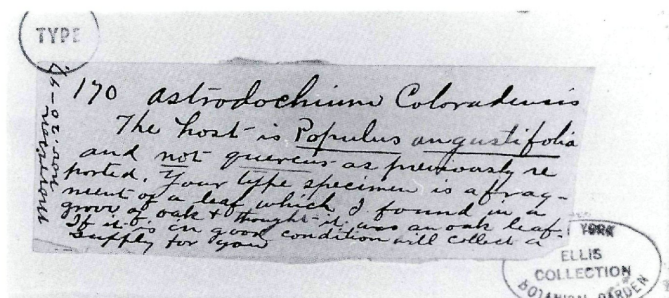 TYPE
170 Astrodochium Coloradensis
The host is Populus angustifolia
and not quercus as previously re
ported. Your type specimen is a frag-
ment of a leaf which I found in a
grove of oak & thought it was an oak leaf.
If it is in good condition will collect a
supply for you
YORK
ELLIS
COLLECTION
BOTANICAL GARDEN